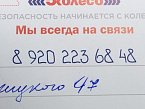 Колесо
БЕЗОПАСНОСТЬ НАЧИНАЕТСЯ С КОЛЕ
Мы всегда на связи
8 920 223 68 48
ицкого 47